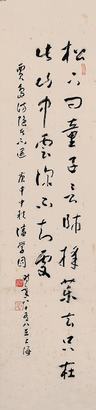 松下问童子言师採药去只在
此山中云深不知处
贾岛寻隐者不遇 庚申中秋潘学固
上海